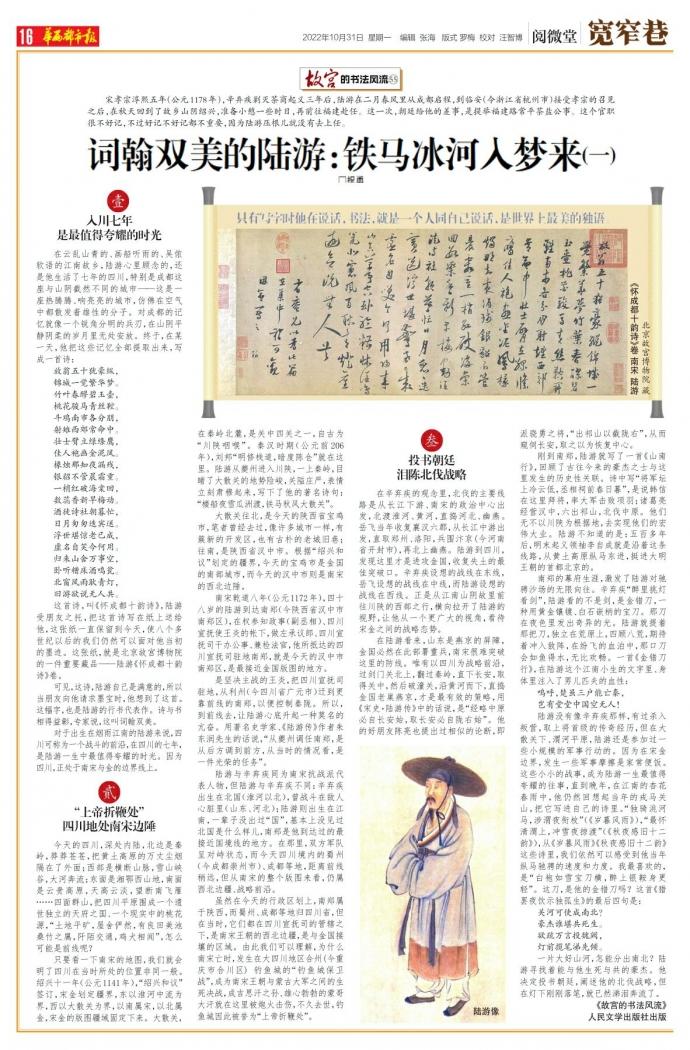 16 华西都市报
2022年10月31日 星期一 编辑 张海 版式 罗梅 校对 汪智博 阅微堂 宽窄巷
故宫的书法风流
宋孝宗淳熙五年(公元1178年),辛弃疾剿灭茶商起义三年后,陆游在二月春风里从成都启程,到临安(今浙江省杭州市)接受孝宗的召见
之后,在秋天回到了故乡山阴绍兴,准备小憩一些时日,再前往福建赴任。这一次,朝廷给他的差事,是提举福建路常平茶盐公事。这个官职
很不好记,不过好记不好记都不重要,因为陆游压根儿就没有去上任。
词翰双美的陆游:铁马冰河入梦来(一)
壹
入川七年
是最值得夸耀的时光
在云乱山青的、画船听雨的、吴侬
软语的江南故乡,陆游心里顾念的,还
是他生活了七年的四川,特别是成都这
座与山阴截然不同的城市——这是一
座热腾腾、响亮亮的城市,仿佛在空气
中都散发着雄性的分子。对成都的记
忆就像一个锐角分明的兵刃,在山阴平
静阴柔的岁月里无处安放。终于,在某
一天,他把这些记忆全部提取出来,写
成一首诗:
放翁五十犹豪纵,
锦城一觉繁华梦。
竹叶春醪碧玉壶,
桃花骏马青丝鞚。
斗鸡南市各分朋,
射雉西郊常命中。
壮士臂立绿绦鹰,
佳人袍画金泥凤。
椽烛那知夜漏残,
银貂不管晨霜重。
一梢红破海棠回,
数蕊香新早梅动。
酒徒诗社朝暮忙,
日月匆匆迭宾送。
浮世堪惊老已成,
虚名自笑今何用。
归来山舍万事空,
卧听糟床酒鸣瓮。
北窗风雨耿青灯,
旧游欲说无人共。
这首诗,叫《怀成都十韵诗》,陆游
受朋友之托,把这首诗写在纸上送给
他,这张纸一直保留到今天,使八个多
世纪以后的我们仍然可以面对他当初
的墨迹。这张纸,就是北京故宫博物院
的一件重要藏品——陆游《怀成都十韵
诗》卷。
可见,这诗,陆游自己是满意的,所以
当朋友向他请求墨宝时,他想到了这首。
这幅字,也是陆游的行书代表作。诗与书
相得益彰,专家说,这叫词翰双美。
对于出生在烟雨江南的陆游来说,四
川可称为一个战斗的前沿,在四川的七年,
是陆游一生中最值得夸耀的时光。因为
四川,正处于南宋与金的边界线上。
贰
“上帝折鞭处”
四川地处南宋边陲
今天的四川,深处内陆,北边是秦
岭,莽莽苍苍,把黄土高原的万丈尘烟
隔在了外面;西部是横断山脉,雪山峡
谷,大河奔流;东面是湘鄂西山地,南面
是云贵高原,天高云淡,望断南飞雁
……四面群山,把四川平原围成一个遗
世独立的天府之国、一个现实中的桃花
源,“土地平旷,屋舍俨然,有良田美池
桑竹之属,阡陌交通,鸡犬相闻”,怎么
可能是前线呢?
只要看一下南宋的地图,我们就会
明了四川在当时所处的位置非同一般。
绍兴十一年(公元1141年),“绍兴和议”
签订,宋金划定疆界,东以淮河中流为
界,西以大散关为界,以南属宋,以北属
金,宋金的版图疆域固定下来。大散关,
只有写字时他在说话,书法,就是一个人同自己说话,是世界上最美的独语。
《怀成都十韵诗》卷 南宋 陆游
北京故宫博物院 藏
在秦岭北麓,是关中四关之一,自古为
“川陕咽喉”。秦汉时期(公元前206
年),刘邦“明修栈道,暗度陈仓”就在这
里。陆游从夔州进入川陕,一上秦岭,目
睹了大散关的地势险峻,关隘庄严,表情
立刻肃穆起来,写下了他的著名诗句:
“楼船夜雪瓜洲渡,铁马秋风大散关”。
大散关往北,是今天的陕西省宝鸡
市,笔者曾经去过,像许多城市一样,有
簇新的开发区,也有古朴的老城旧巷;
往南,是陕西省汉中市。根据“绍兴和
议”划定的疆界,今天的宝鸡市是金国
的南部城市,而今天的汉中市则是南宋
的西北边陲。
南宋乾道八年(公元1172年),四十
八岁的陆游到达南郑(今陕西省汉中市
南郑区),在权参知政事(副丞相)、四川
宣抚使王炎的帐下,做左承议郎、四川宣
抚司干办公事、兼检法官,他所抵达的四
川宣抚司驻地南郑,就是今天的汉中市
南郑区,是最接近金国版图的地方。
是坚决主战的王炎,把四川宣抚司
驻地,从利州(今四川省广元市)迁到更
靠前线的南郑,以便控制秦陇。所以,
到前线去,让陆游心底升起一种莫名的
亢奋。用著名史学家、《陆游传》作者朱
东润先生的话说,“从夔州调任南郑,是
从后方调到前方,从当时的情况看,是
一件光荣的任务”。
陆游与辛弃疾同为南宋抗战派代
表人物,但陆游与辛弃疾不同:辛弃疾
出生在北国(淮河以北),曾战斗在敌人
心脏里(山东、河北);陆游则出生在江
南,一辈子没出过“国”,基本上没见过
北国是什么样儿,南郑是他到达过的最
接近国境线的地方。在那里,双方军队
呈对峙状态,而今天四川境内的蜀州
(今成都崇州市)、成都等地,距离前线
稍远,但从南宋的整个版图来看,仍属
西北边疆、战略前沿。
虽然在今天的行政区划上,南郑属
于陕西,而蜀州、成都等地归四川省,但
在当时,它们都在四川宣抚司的管辖之
下,是南宋王朝的西北边疆,是与金国接
壤的区域。由此我们可以理解,为什么
南宋亡时,发生在大四川地区合州(今重
庆市合川区)钓鱼城的“钓鱼城保卫
战”,成为南宋王朝与蒙古大军之间的生
死决战,成吉思汗之孙、雄心勃勃的蒙哥
大汗就在这里被炮火击伤,不久去世,钓
鱼城因此被誉为“上帝折鞭处”。
叁
投书朝廷
泪陈北伐战略
在辛弃疾的观念里,北伐的主要线
路是从长江下游、南宋的政治中心出
发,北渡淮河、黄河,直捣河北、幽燕,
岳飞当年收复襄汉六郡,从长江中游出
发,直取郑州、洛阳,兵围汴京(今河南
省开封市),再北上幽燕。陆游到四川,
发现这里才是进攻金国、收复失土的最
佳突破口。辛弃疾设想的战线在东线,
岳飞设想的战线在中线,而陆游设想的
战线在西线。正是从江南山阴故里前
往川陕的西部之行,横向拉开了陆游的
视野,让他从一个更广大的视角,看待
宋金之间的战略态势。
在陆游看来,山东是燕京的屏障,
金国必然在此部署重兵,南宋很难突破
这里的防线。唯有以四川为战略前沿,
过剑门关北上,翻过秦岭,直下长安,取
得关中,然后破潼关、沿黄河而下,直捣
金国老巢燕京,才是最有效的策略,用
《宋史·陆游传》中的话说,是“经略中原
必自长安始,取长安必自陇右始”。他
的好朋友陈亮也提出过相似的论断,即
陆游像
派骁勇之将,“出祁山以截陇右”,从而
窥伺长安,取之以为恢复中心。
刚到南郑,陆游就写了一首《山南
行》,回顾了古往今来的豪杰之士与这
里发生的历史性关联。诗中写“将军坛
上冷云低,丞相祠前春日暮”,是说韩信
在这里拜将,率大军击败项羽;诸葛亮
经营汉中,六出祁山,北伐中原。他们
无不以川陕为根据地,去实现他们的宏
伟大业。陆游不知道的是:五百多年
后,明末起义领袖李自成就是沿着这条
线路,从黄土高原纵马东进,挺进大明
王朝的首都北京的。
南郑的幕府生涯,激发了陆游对驰
骋沙场的无限向往。辛弃疾“醉里挑灯
看剑”,陆游看的不是剑,是金错刀,一
种用黄金镶镀、白石嵌柄的宝刀。那刀
在夜色里发出奇异的光。陆游就提着
那把刀,独立在荒原上,四顾八荒,期待
着冲入敌阵,在纷飞的血泊中,那口刀
会如鱼得水,无比欢畅。一首《金错刀
行》,在陆游这个江南小生的文字里、身
体里注入了男儿匹夫的血性:
呜呼,楚虽三户能亡秦,
岂有堂堂中国空无人!
陆游没有像辛弃疾那样,有过杀入
叛营、取上将首级的传奇经历,但在大
散关下、渭河平原,陆游还是参加过一
些小规模的军事行动的。因为在宋金
边界,发生一些军事摩擦是家常便饭。
这些小小的战事,成为陆游一生最值得
夸耀的往事,直到晚年,在江南的杏花
春雨中,他仍然回想起当年的戎马关
山,把它写进自己的诗里。“独骑洮河
马,涉渭夜衔枚”(《岁暮风雨》),“最怀
清渭上,冲雪夜掠渡”(《秋夜感旧十二
韵》),从《岁暮风雨》《秋夜感旧十二韵》
这些诗里,我们依然可以感受到他当年
纵马驰骋的速度和力度。我最喜欢的,
是“白袍如雪宝刀横,醉上银鞍身更
轻”。这刀,是他的金错刀吗?这首《猎
罢夜饮示独孤生》的最后四句是:
关河可使成南北?
豪杰谁堪共死生。
欲疏万言投魏阙,
灯前揽笔涕先倾。
一片大好山河,怎能分出南北?陆
游寻找着能与他生死与共的豪杰。他
决定投书朝廷,阐述他的北伐战略,但
在灯下刚刚落笔,就已然涕泪奔流了。
《故宫的书法风流》
人民文学出版社出版